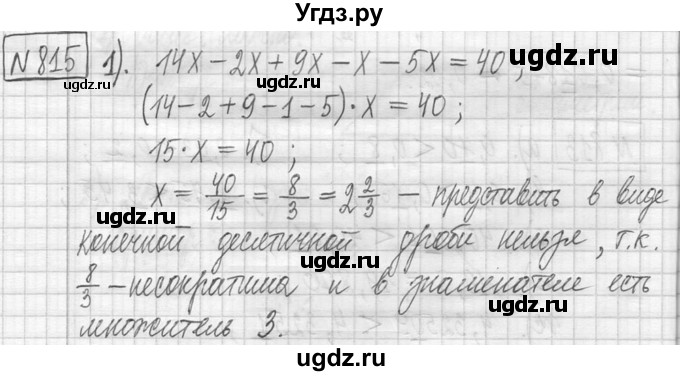 Угдз.ру
№815 1). 14x − 2x + 9x − x − 5x = 40;
(14 − 2 + 9 − 1 − 5) · x = 40;
15 · x = 40;
x = 40/15 = 8/3 = 2 2/3 — представить в виде
конечной десятичной дроби нельзя, т.к.
8/3 — несократима и в знаменателе есть
множитель 3.
ugdz.ru
ugdz.ru
ugdz.ru
ugdz.ru
ugdz.ru
ugdz.ru
ugdz.ru
ugdz.ru
ugdz.ru
ugdz.ru